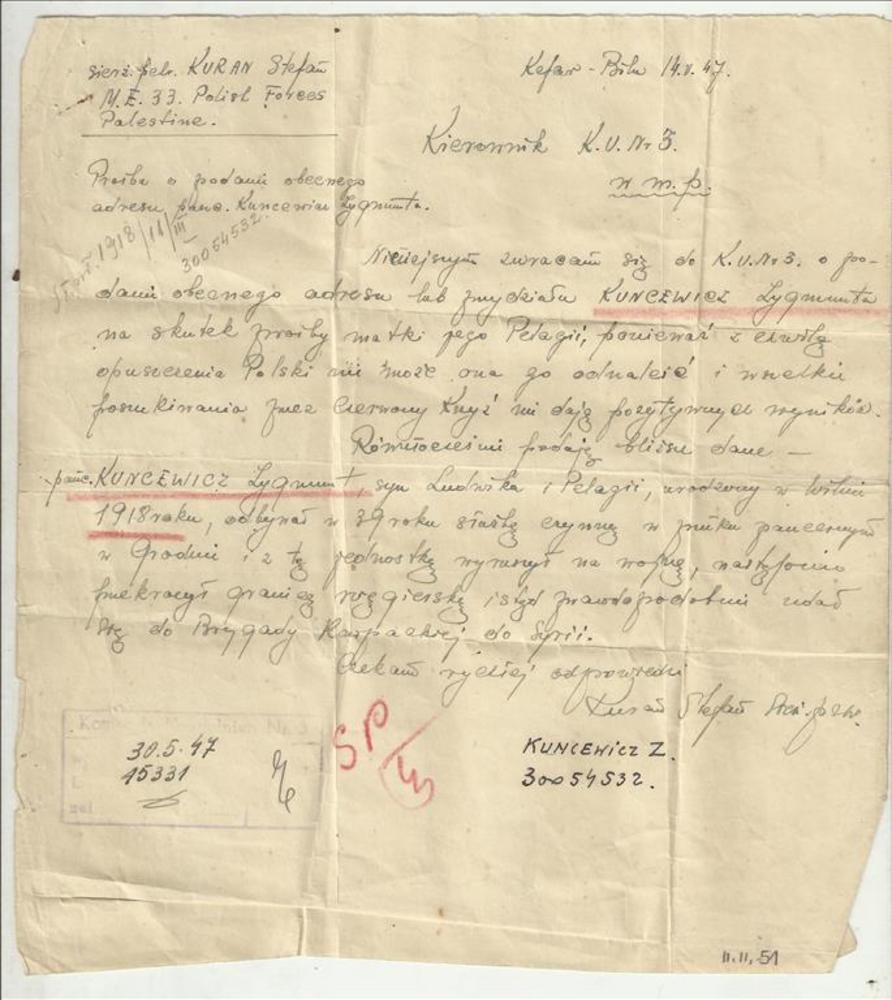 sierż. pchr. KURAŃ Stefan
M.E. 33. Polish Forces
Palestine.
Kefar - Bilu 14.V.47.
Kierownik K.U. Nr 3.
w m.p.
Prośba o podanie obecnego
adresu panc. Kuncewicz Zygmunta.
1918/11/III
30054532
Niniejszym zwracam się do K.U.Nr 3. o po-
danie obecnego adresu lub przydziału KUNCEWICZ Zygmunta
na skutek prośby matki jego Pelagii, ponieważ z chwilą
opuszczenia Polski nie może ona go odnaleźć i wszelkie
poszukiwania przez Czerwony Krzyż nie dają pozytywnych wyników.
Równocześnie podaję bliższe dane —
panc. KUNCEWICZ Zygmunt, syn Ludwika i Pelagii, urodzony w Wilnie
1918 roku, odbywał w 39 roku służbę czynną w pułku pancernym
w Grodnie i z tą jednostką wyruszył na wojnę, następnie
przekroczył granicę węgierską i stąd prawdopodobnie udał
się do Brygady Karpackiej do Syrii.
Czekam rychłej odpowiedzi
Kurań Stefan
SP
30.5.47
15331
KUNCEWICZ Z.
30054532.
11.11.51